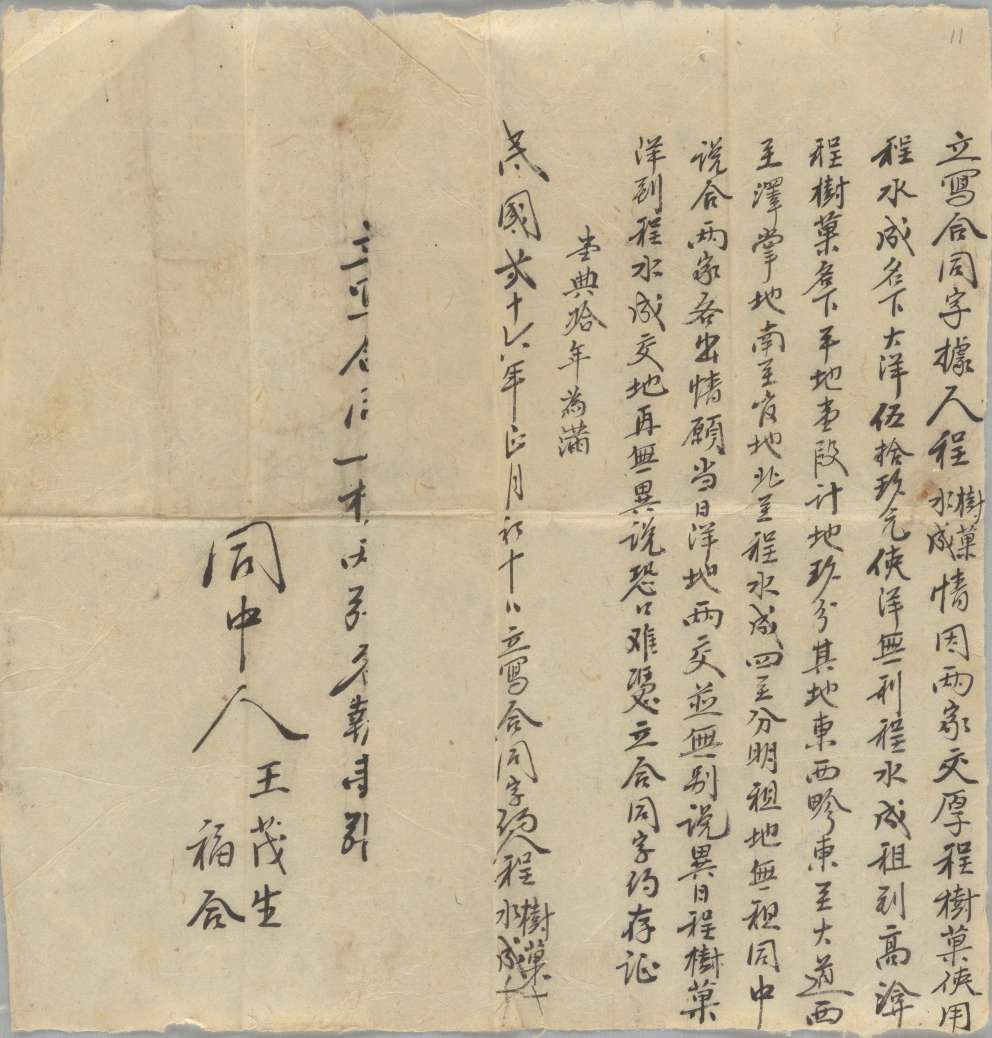 11
立寫合同字據人程樹菓水成情因两家交厚程樹菓使用
程水成名下大洋伍拾玖元使洋無利程水成租到高
程樹菓名下平地壹段計地玖分其地東西畛東至大道西
至澤掌地南至官地北至程水成四至分明租地無租同中
说合两家各出情願当日洋地两交並無别説異日程樹菓
洋到程水成交地再無異説恐口难憑立合同字约存证
壹典拾年為滿
民國貳十六年正月初十日立寫合同字约人程樹菓水成十
立寫合同一樣两
同中人
王茂生
福合